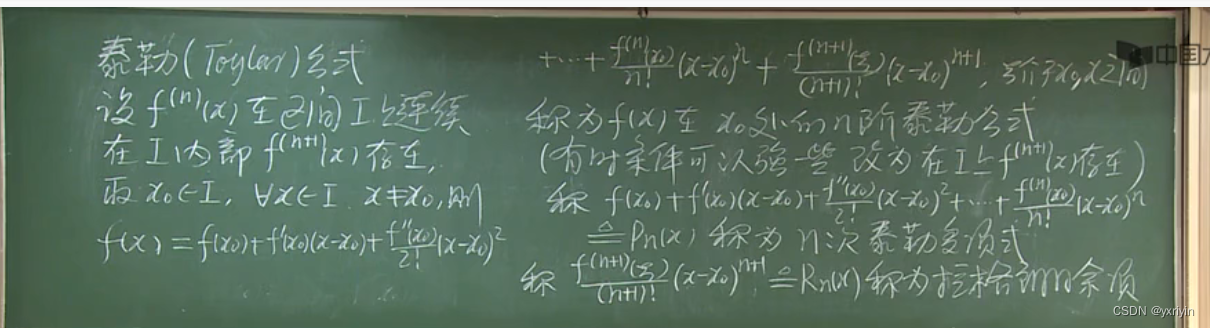 泰勒(Taylor)公式
设f⁽ⁿ⁾(x)在区间I上连续
在I内部f⁽ⁿ⁺¹⁾(x)存在,
取x₀∈I, ∀x∈I, x≠x₀, 则
f(x) = f(x₀)+f'(x₀)(x-x₀)+f''(x₀)/2!(x-x₀)²
+⋯+f⁽ⁿ⁾(x₀)/n!(x-x₀)ⁿ + f⁽ⁿ⁺¹⁾(ξ)/(n+1)!(x-x₀)ⁿ⁺¹, ξ介于x₀,x之间
称为f(x)在x₀处的n阶泰勒公式
(有时条件可以强一些改为在I上f⁽ⁿ⁺¹⁾(x)存在)
称 f(x₀)+f'(x₀)(x-x₀)+f''(x₀)/2!(x-x₀)²+⋯+f⁽ⁿ⁾(x₀)/n!(x-x₀)ⁿ
≜Pn(x) 称为n次泰勒多项式
称 f⁽ⁿ⁺¹⁾(ξ)/(n+1)!(x-x₀)ⁿ⁺¹≜Rn(x)称为拉格朗日余项
中国大
CSDN @yxriyin